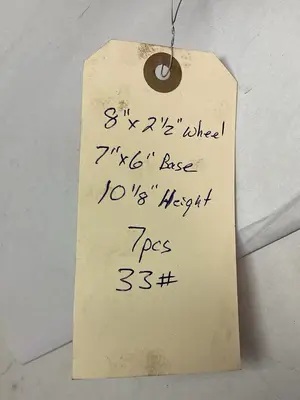 8"x 2 1/2" Wheel
7"x6" Base
10 1/8" Height
7pcs
33#